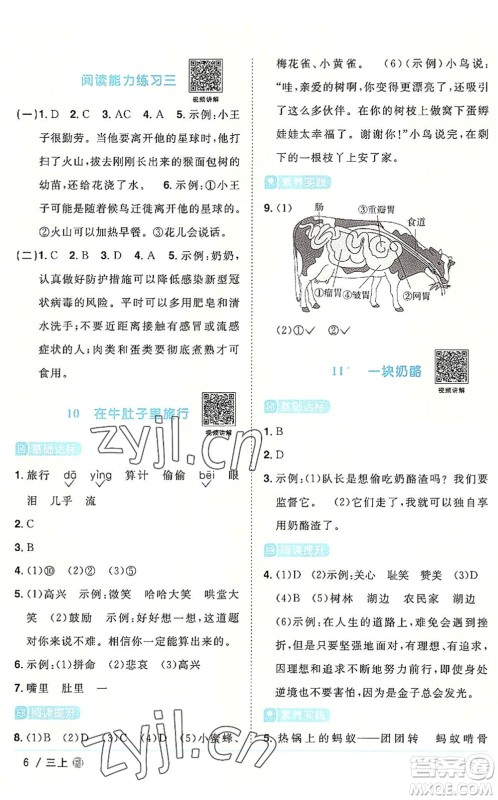 阅读能力练习三
视频讲解
(一)1. D 2. AC 3. A 4. A 5. 示例:小王
子很勤劳。当他要离开他的星球时,他打
扫了火山,并拔除了长出来的猴面包树的
幼苗,还给花浇了水。 6. 示例:①小王子
好像随着候鸟迁徙离开他的星球的。②
火山可以加热早餐。 ③花儿会说话。
(二)1. D 2. B 3. C 4. A 5. 示例:奶奶,
认真做好防护措施可以降低感染新型冠
状病毒的风险。平时要注意用肥皂和清
水洗手;不要去接触有感冒或流感症
症状的人;肉类和蛋类都要煮熟或煎熟才
能食用。
10 在牛肚子里旅行
视频讲解
基础达标
1. 旅行 dā yìng 算计 偷偷 bēi 眼
泪 几乎 流
2. C
3. B
4. (1)⑩ (2)② (3)⑤
5. (1)高兴 示例:微笑 哈哈大笑 哄堂大
笑 (2)鼓励 示例:小明,这个问题对你
来说不难。相信你一定能算出来的。
6. 示例:(1)拼命 (2)悲哀 (3)高兴
7. 嘴里 肚里 一
阅读提升
8. (1)B (2)D (3)C (4)A (5)小蜜蜂、
6 / 三上
梅花雀、小黄雀。 (6)(示例)小鸟说:
“哇,亲爱的树啊,你变得更漂亮了,我想
和你合作。我在你的树枝上做窝下蛋孵
娃娃太幸福了。谢谢你!”小鸟说完从树
的一根枝丫上下去了。
素养实践
9. (1)
肠 ③重瓣胃 食道
①瘤胃 ④皱胃 ②网胃
(2)①√ ②√
11 一块奶酪
视频讲解
基础达标
1. C
2. 示例:(1)队长是想偷吃奶酪渣吗?我们要
监督它。 (2)可以,这样我就可以独自享
用奶酪渣了。
阅读提升
3. (1)D (2)示例:关心 耻笑 赞美 (3)B
4. (1)B (2)示例:树林 湖边 农民家 湖边
(3)D (4)示例:在人生的道路上,要勇敢面对挫
折,只有坚强地面对,有理想、有奋斗,并
因理想而追求,这样的人即使身处
逆境仍不会屈服,就是金子总会发光的。
素养实践
5. 示例:热锅上的蚂蚁——团团转 蚂蚁啃骨
zyjl.cn